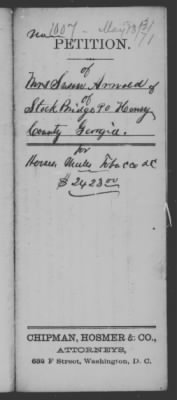 1007 - May 18/71
PETITION.
of
Mrs Susan Arnold of
Stock Bridge P.O Henry
County Georgia.
for
Horses Mules Tobacco &C
$ 2423 00
CHIPMAN, HOSMER & CO.,
ATTORNEYS,
632 F Street, Washington, D. C.